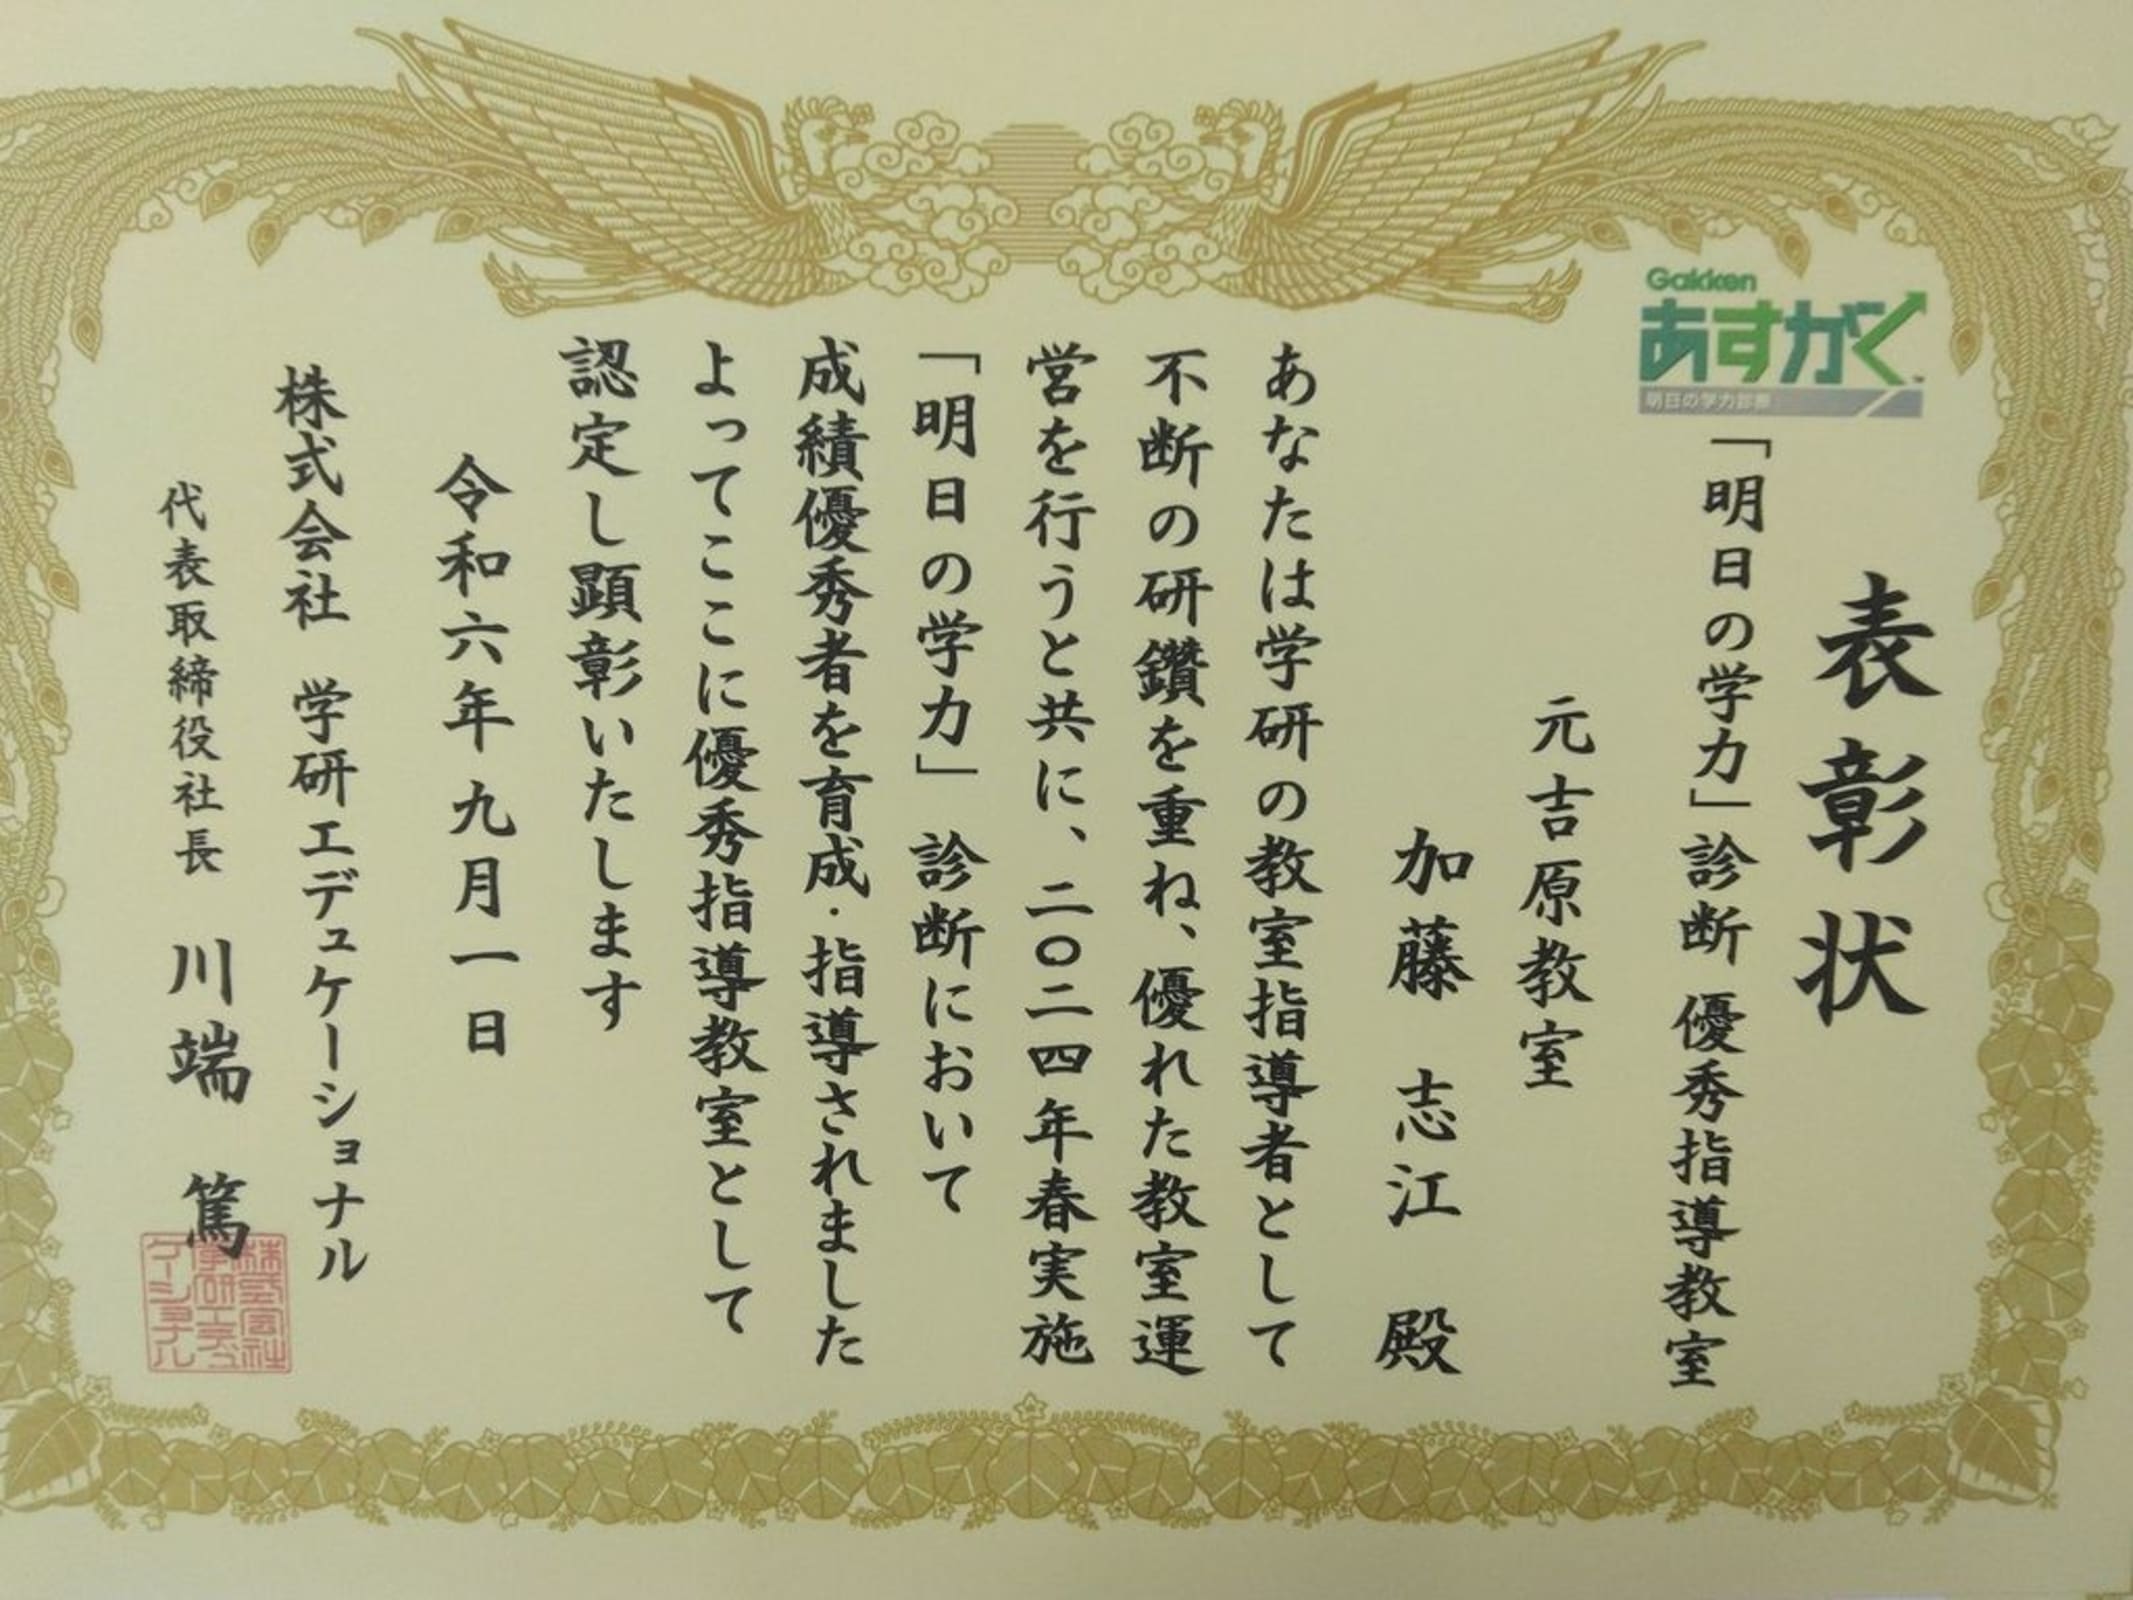 Gakken
あすがく
明日の学力診断
表彰状
「明日の学力」診断 優秀指導教室
元吉原教室
加藤 志江 殿
あなたは学研の教室指導者として
不断の研鑽を重ね、優れた教室運
営を行うと共に、二〇二四年春実施
「明日の学力」診断において
成績優秀者を育成・指導されました
よってここに優秀指導教室として
認定し顕彰いたします
令和六年九月一日
株式会社 学研エデュケーショナル
代表取締役社長 川端 篤
株式会社
学研エデュ
ケーショナル